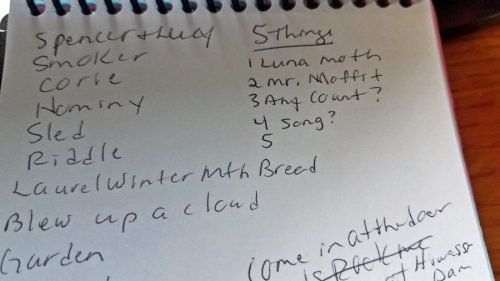 Spencer + Leaf
Smoker
Corie
Hominy
Sled
Riddle
Laurel Winter Mth Breed
Blew up a cloud
Garden
5 Things
1 Luna moth
2 Mr. Moffit
3 Ant Count?
4 Song?
5
Come in at the door
is Rock me
Dam